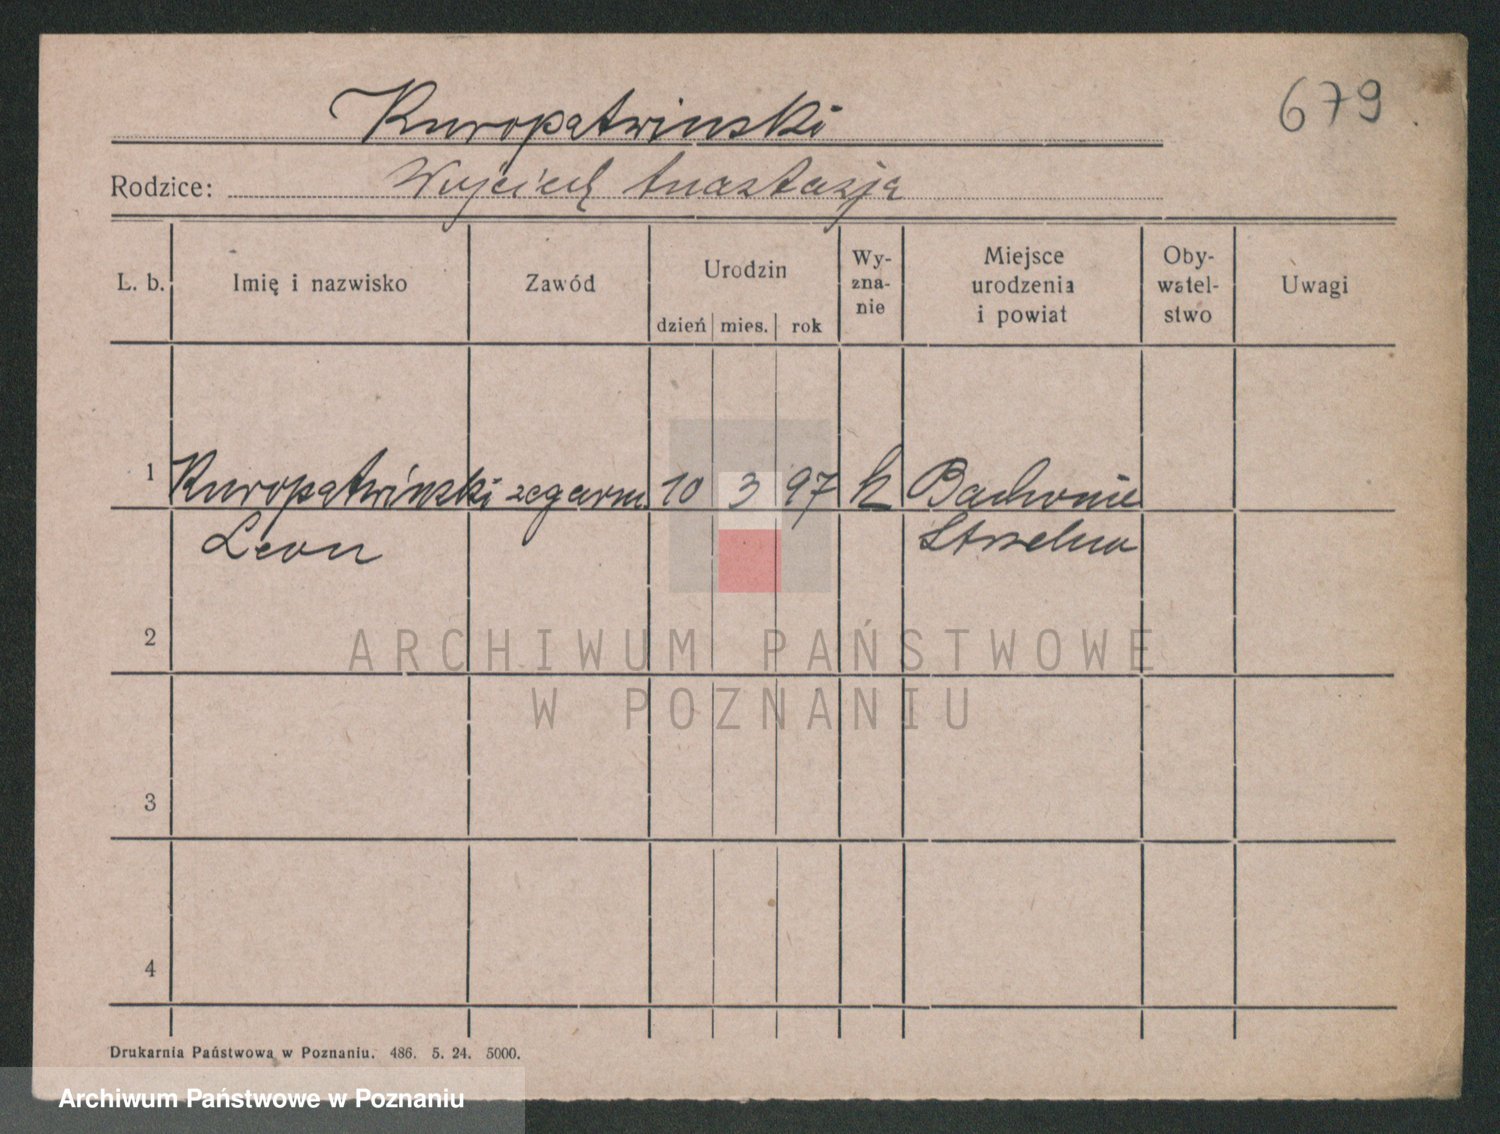 679
Kuropatwinski
Rodzice: Wojciech Anastazja
L. b. Imię i nazwisko Zawód Urodzin dzień mies. rok Wy-zna-nie Miejsce urodzenia i powiat Oby-watel-stwo Uwagi
1 Kuropatwiński zegarm. 10 3 97 k
Leon Strzelno
2
ARCHIWUM PAŃSTWOWE
W POZNANIU
3
4
Drukarnia Państwowa w Poznaniu. 486. 5. 24. 5000.
Archiwum Państwowe w Poznaniu